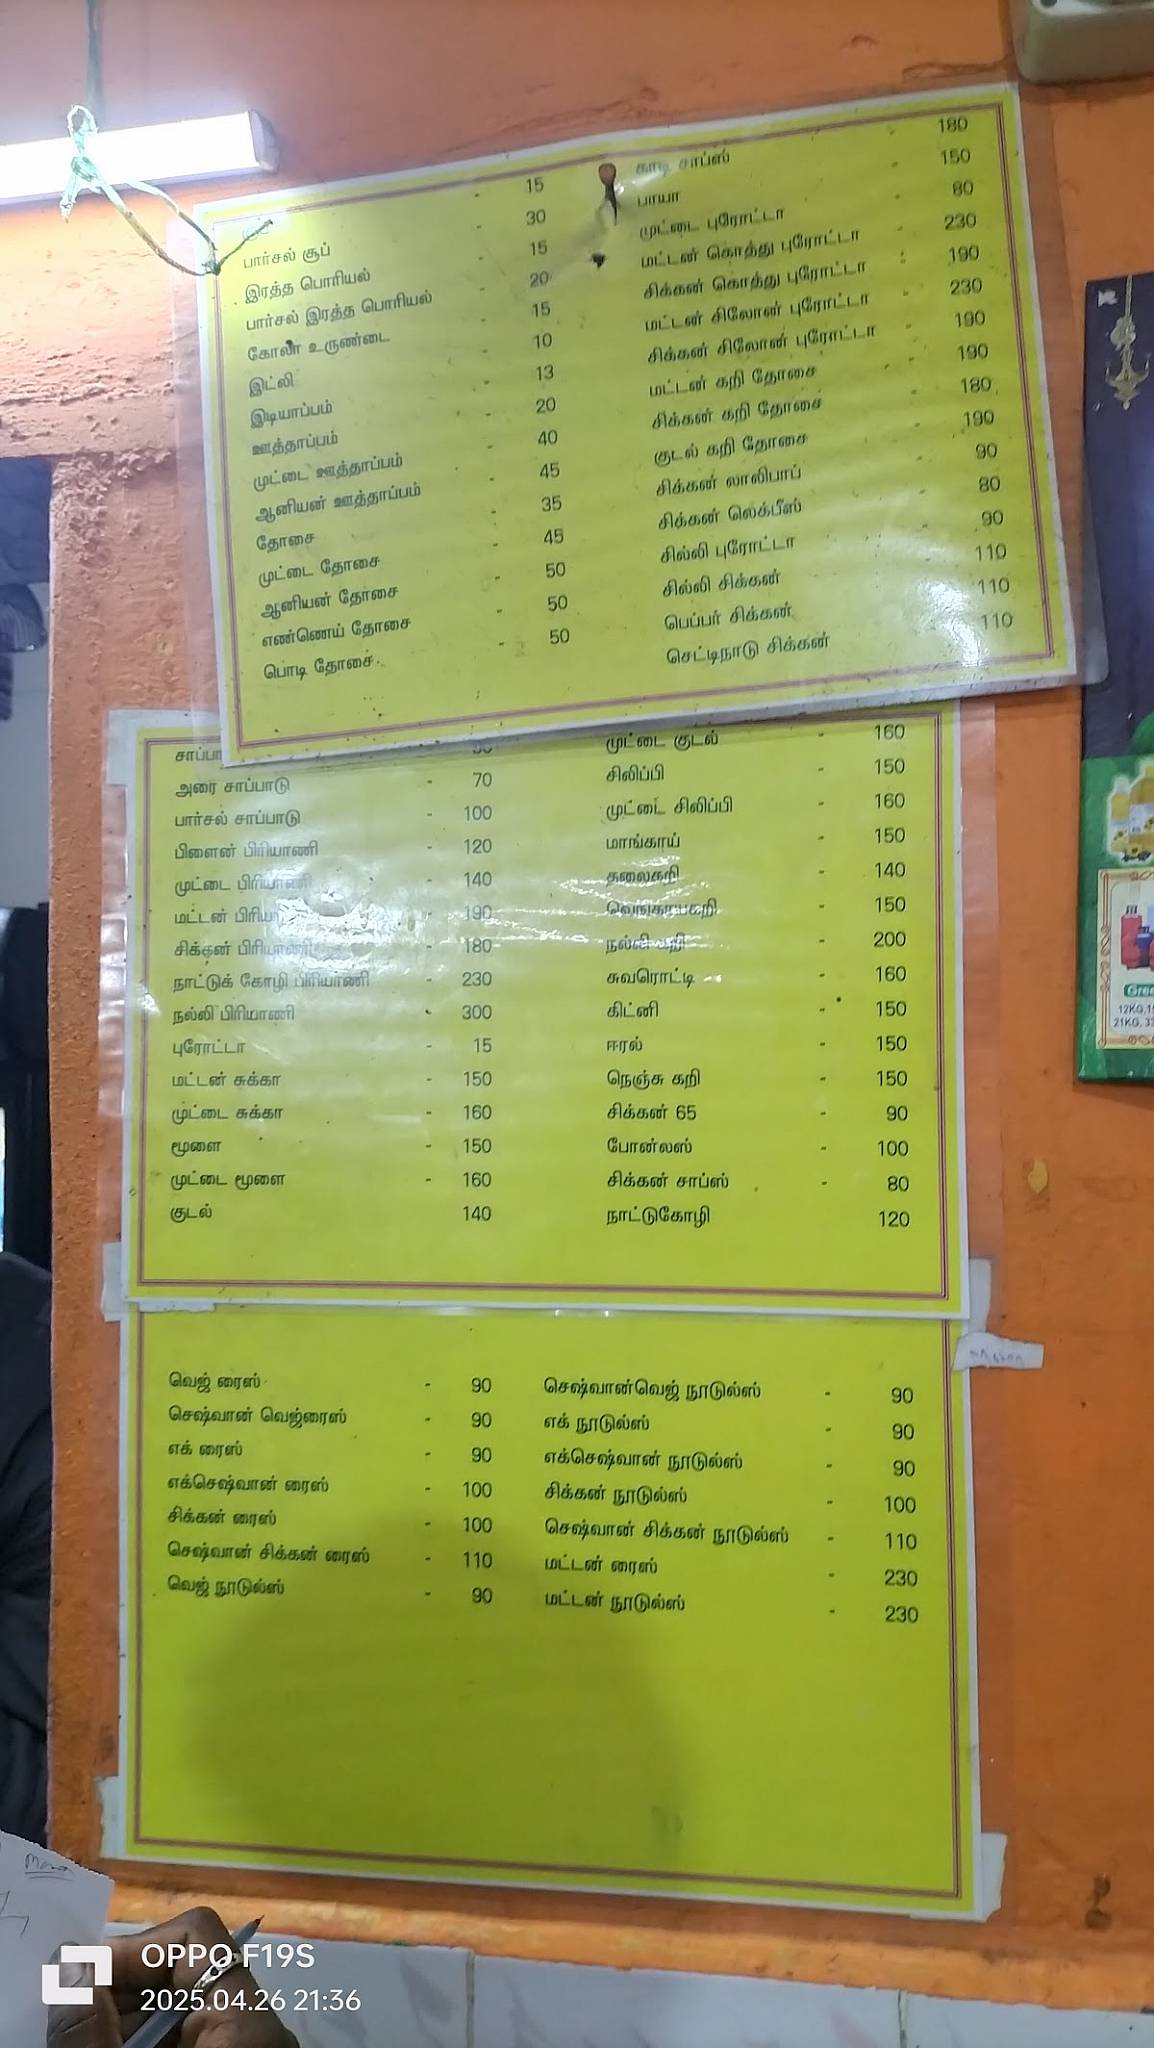 - 15
பார்சல் சூப் - 30
இரத்த பொரியல் - 15
பார்சல் இரத்த பொரியல் - 20
கோலா உருண்டை - 15
இட்லி - 10
இடியாப்பம் - 13
ஊத்தாப்பம் - 20
முட்டை ஊத்தாப்பம் - 40
ஆனியன் ஊத்தாப்பம் - 45
தோசை - 35
முட்டை தோசை - 45
ஆனியன் தோசை - 50
எண்ணெய் தோசை - 50
பொடி தோசை - 50
சாப்ஸ் - 180
பாயா - 150
முட்டை புரோட்டா - 80
மட்டன் கொத்து புரோட்டா - 230
சிக்கன் கொத்து புரோட்டா : 190
மட்டன் சிலோன் புரோட்டா - 230
சிக்கன் சிலோன் புரோட்டா - 190
மட்டன் கறி தோசை - 190
சிக்கன் கறி தோசை - 180
குடல் கறி தோசை - 190
சிக்கன் லாலிபாப் - 90
சிக்கன் லெக்பீஸ் - 80
சில்லி புரோட்டா - 90
சில்லி சிக்கன் - 110
பெப்பர் சிக்கன் - 110
செட்டிநாடு சிக்கன் - 110
அரை சாப்பாடு - 70
பார்சல் சாப்பாடு - 100
பிளைன் பிரியாணி - 120
முட்டை பிரியாணி - 140
மட்டன் பிரியா - 190
சிக்கன் பிரியாணி - 180
நாட்டுக் கோழி பிரியாணி - 230
நல்லி பிரியாணி - 300
புரோட்டா - 15
மட்டன் சுக்கா - 150
முட்டை சுக்கா - 160
மூளை - 150
முட்டை மூளை - 160
குடல் 140
முட்டை குடல் - 160
சிலிப்பி - 150
முட்டை சிலிப்பி - 160
மாங்காய் - 150
தலைகறி - 140
வெங்காயகறி - 150
நல்லி கறி - 200
சுவரொட்டி - 160
கிட்னி - 150
ஈரல் - 150
நெஞ்சு கறி - 150
சிக்கன் 65 - 90
போன்லஸ் - 100
சிக்கன் சாப்ஸ் - 80
நாட்டுகோழி 120
வெஜ் ரைஸ் - 90
செஷ்வான் வெஜ்ரைஸ் - 90
எக் ரைஸ் - 90
எக்செஷ்வான் ரைஸ் - 100
சிக்கன் ரைஸ் - 100
செஷ்வான் சிக்கன் ரைஸ் - 110
வெஜ் நூடுல்ஸ் - 90
செஷ்வான்வெஜ் நூடுல்ஸ் - 90
எக் நூடுல்ஸ் - 90
எக்செஷ்வான் நூடுல்ஸ் - 90
சிக்கன் நூடுல்ஸ் - 100
செஷ்வான் சிக்கன் நூடுல்ஸ் - 110
மட்டன் ரைஸ் - 230
மட்டன் நூடுல்ஸ் - 230
OPPO F19S
2025.04.26 21:36